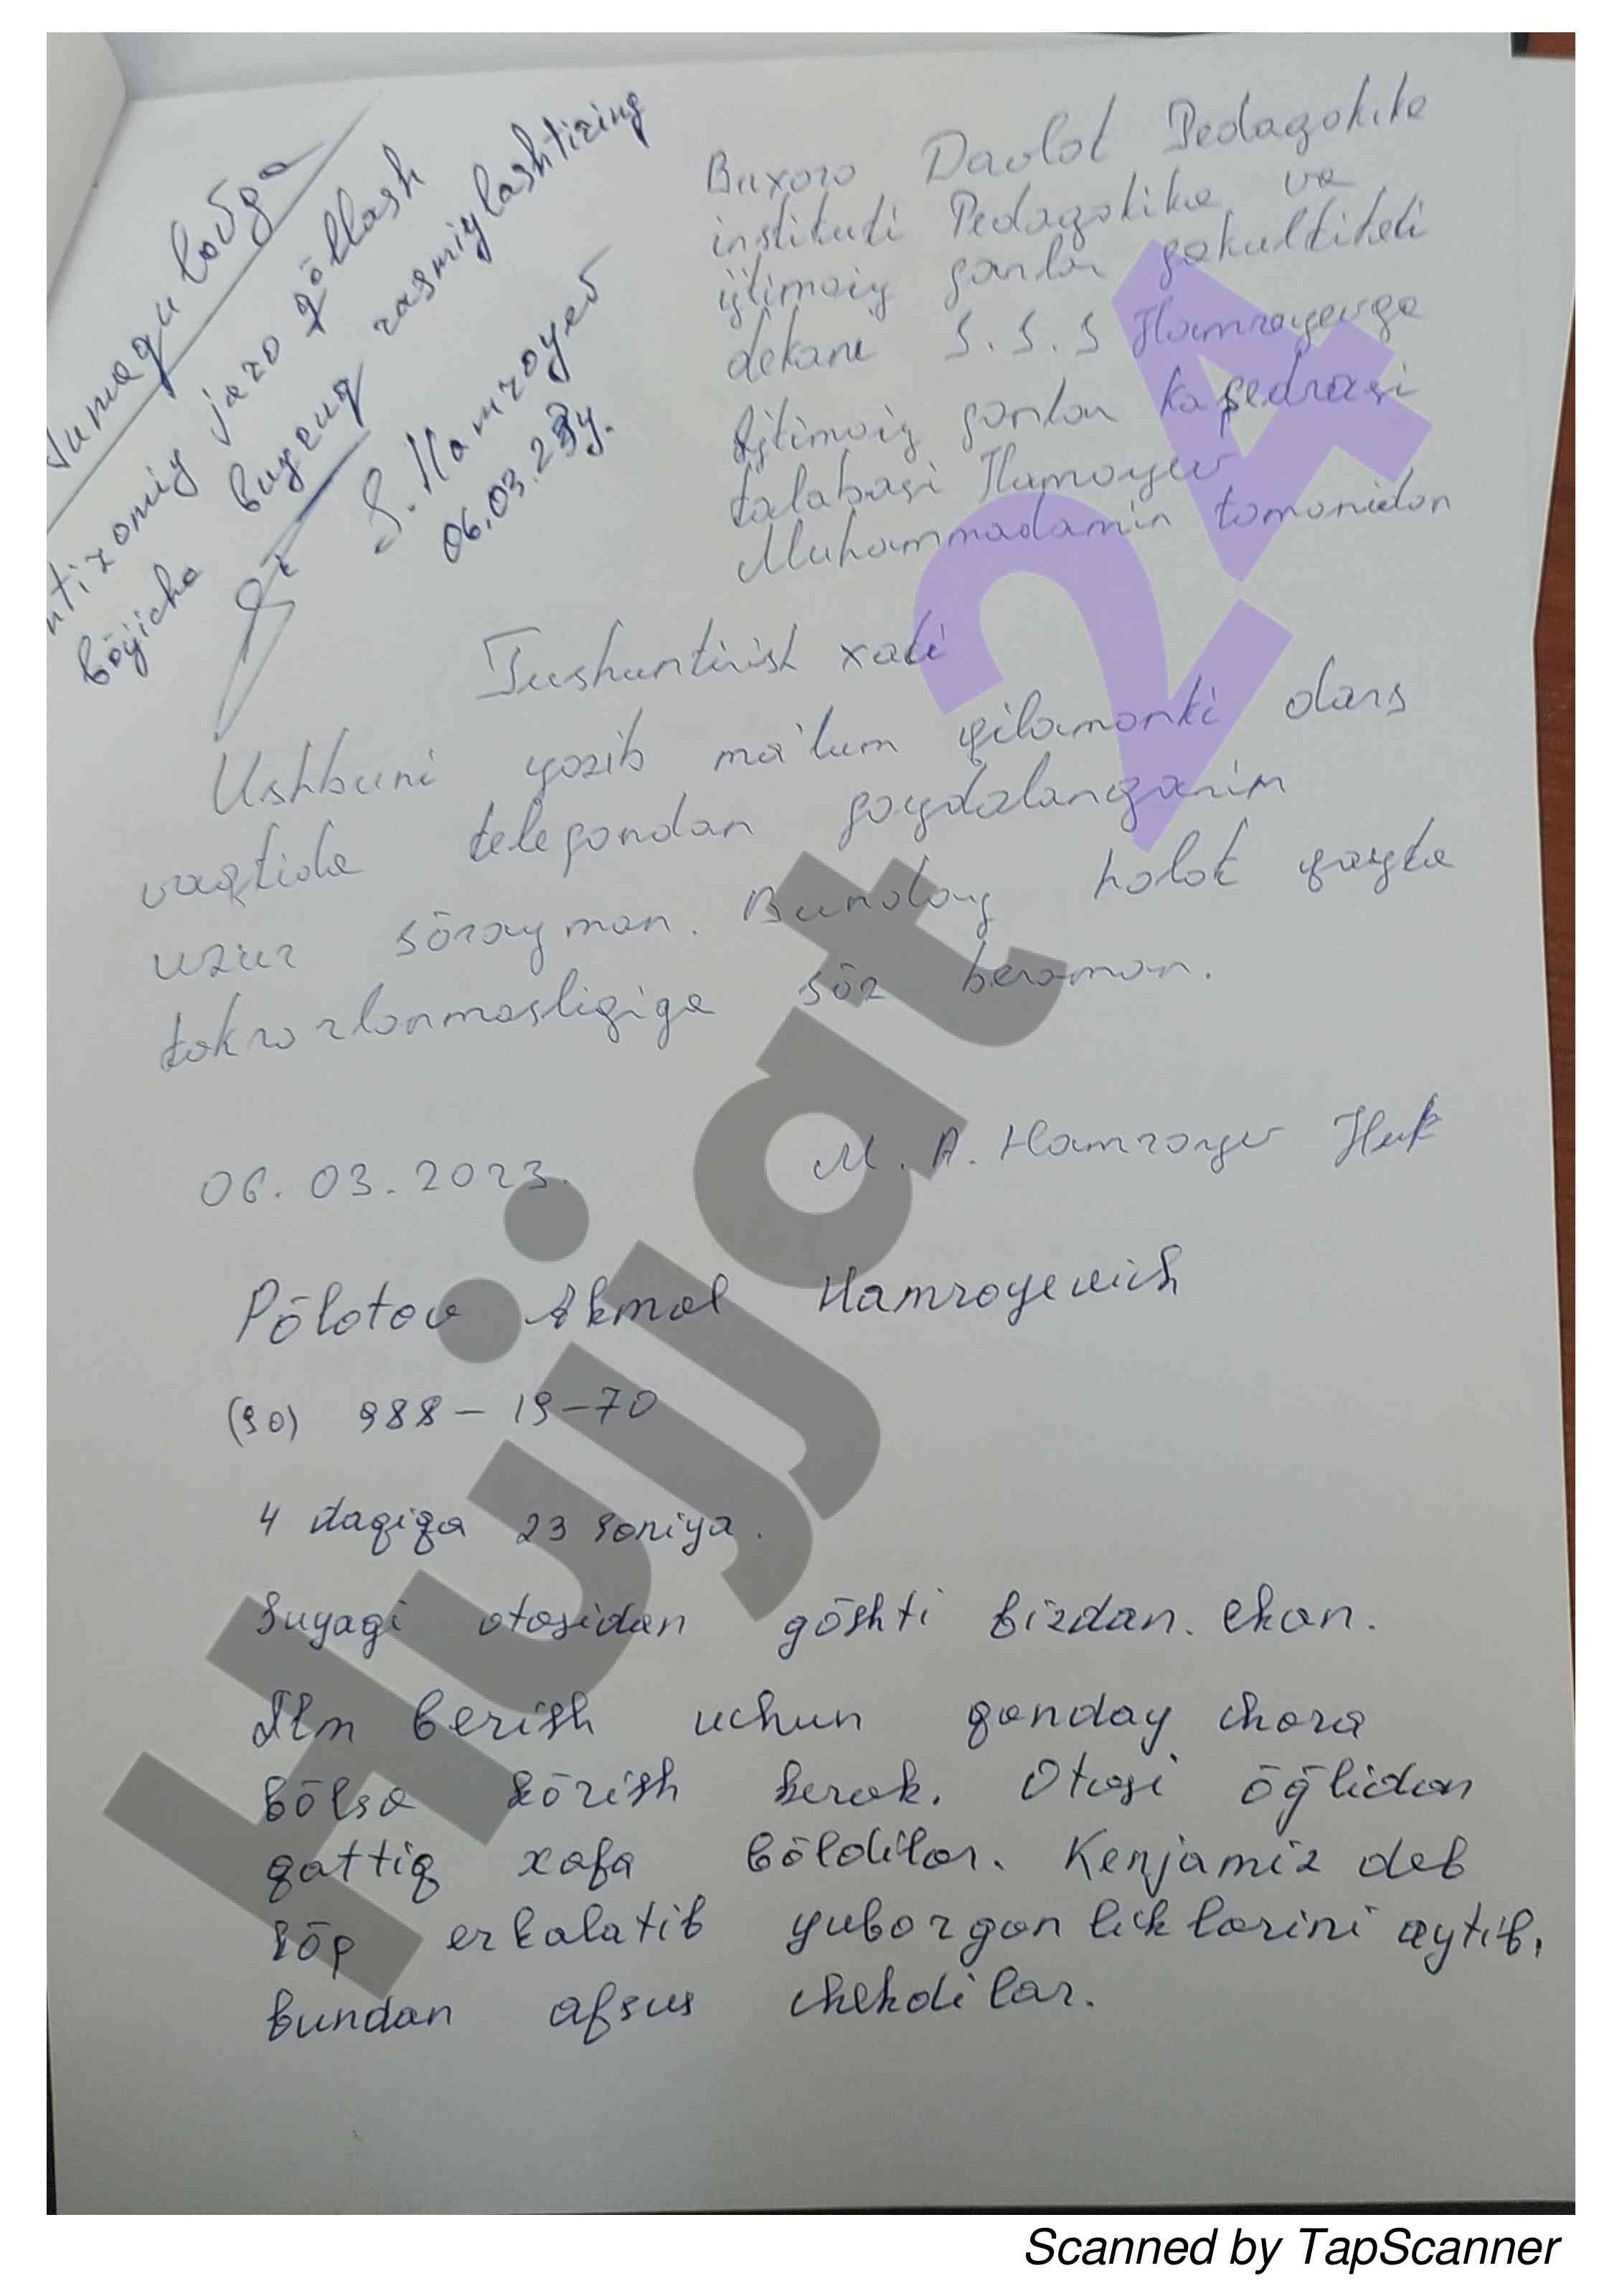 Jumaqulovga
intizomiy jazo qöllash
böyicha buyruq rasmiylashtiring
S. Hamroyev
06.03.23y.
Buxoro Davlot Pedagokika
instituti Pedagokika va
ijtimoiy fanlar fakultiteti
dekani S.S.S Hamroyevga
Ijtimoiy fanlar kafedrasi
talabasi Hamroyev
Muhammadamin tomonidan
Tushuntirish xati
Ushbuni yozib ma'lum qilamanki dars
vaqtida telefondan foydalanganim
uzur sörayman. Bunday holat qayta
takrorlanmasligiga söz beraman.
06.03.2023.
M. A. Hamroyev
Pölotov Akmal Hamroyevich
(90) 988-19-70
4 daqiqa 23 soniya.
Suyagi otasidan göshti bizdan. ekan.
Ilm berish uchun qanday chora
bölsa körish kerak. Otasi öğlidan
qattiq xafa böldilar. Kenjamiz deb
köp erkalatib yuborganliklarini aytib,
bundan afsus chekdilar.
Hujjat 24
Scanned by TapScanner